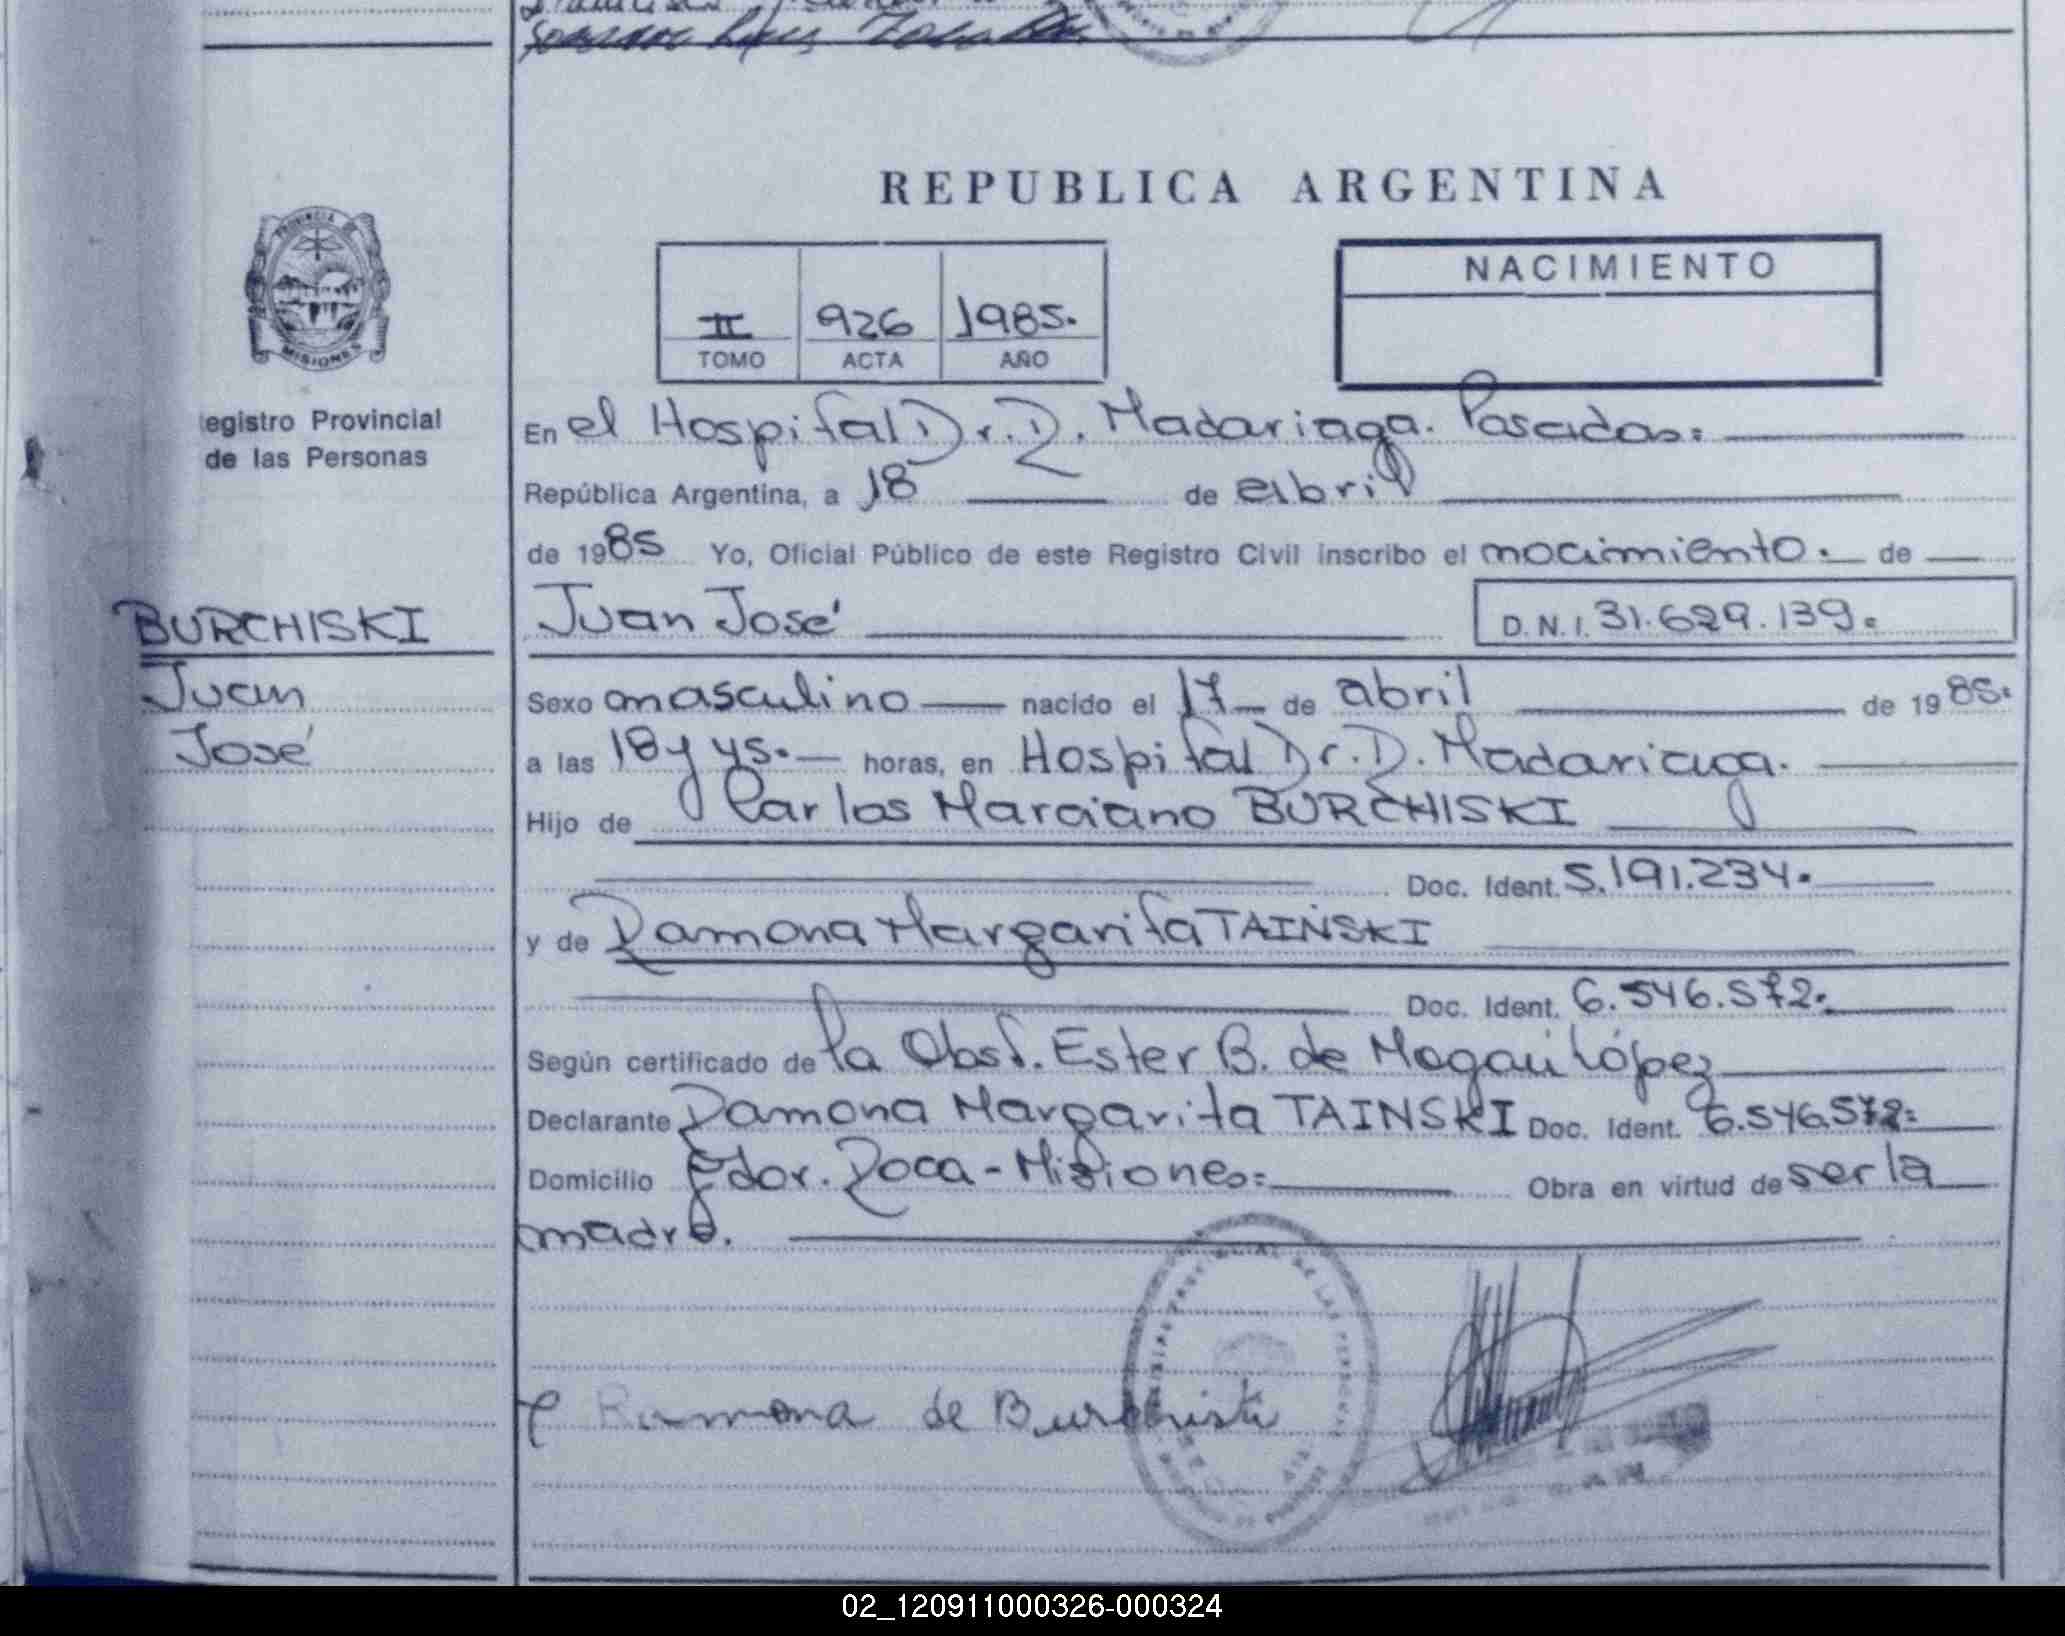 REPUBLICA ARGENTINA
PROVINCIA DE
MISIONES
egistro Provincial
de las Personas
II 926 1985.
TOMO ACTA AÑO
NACIMIENTO
En el Hospital Dr. R. Madariaga. Posadas=
República Argentina, a 18 de abril
de 1985 Yo, Oficial Público de este Registro Civil inscribo el nacimiento. de
BURCHISKI
Juan
José
Juan José D.N.I. 31.629.139.
Sexo masculino nacido el 17 de abril de 1985.
a las 18 y 45. horas, en Hospital Dr. R. Madariaga.
Hijo de Carlos Marciano BURCHISKI
Doc. Ident. 5.191.234.
y de Ramona Margarita TAINSKI
Doc. Ident. 6.546.572.
Según certificado de la Obst. Ester B. de López
Declarante Ramona Margarita TAINSKI Doc. Ident. 6.546.572=
Domicilio Gdor. Roca - Misiones= Obra en virtud de ser la
madre.
Ramona de Burchiski
02_120911000326-000324